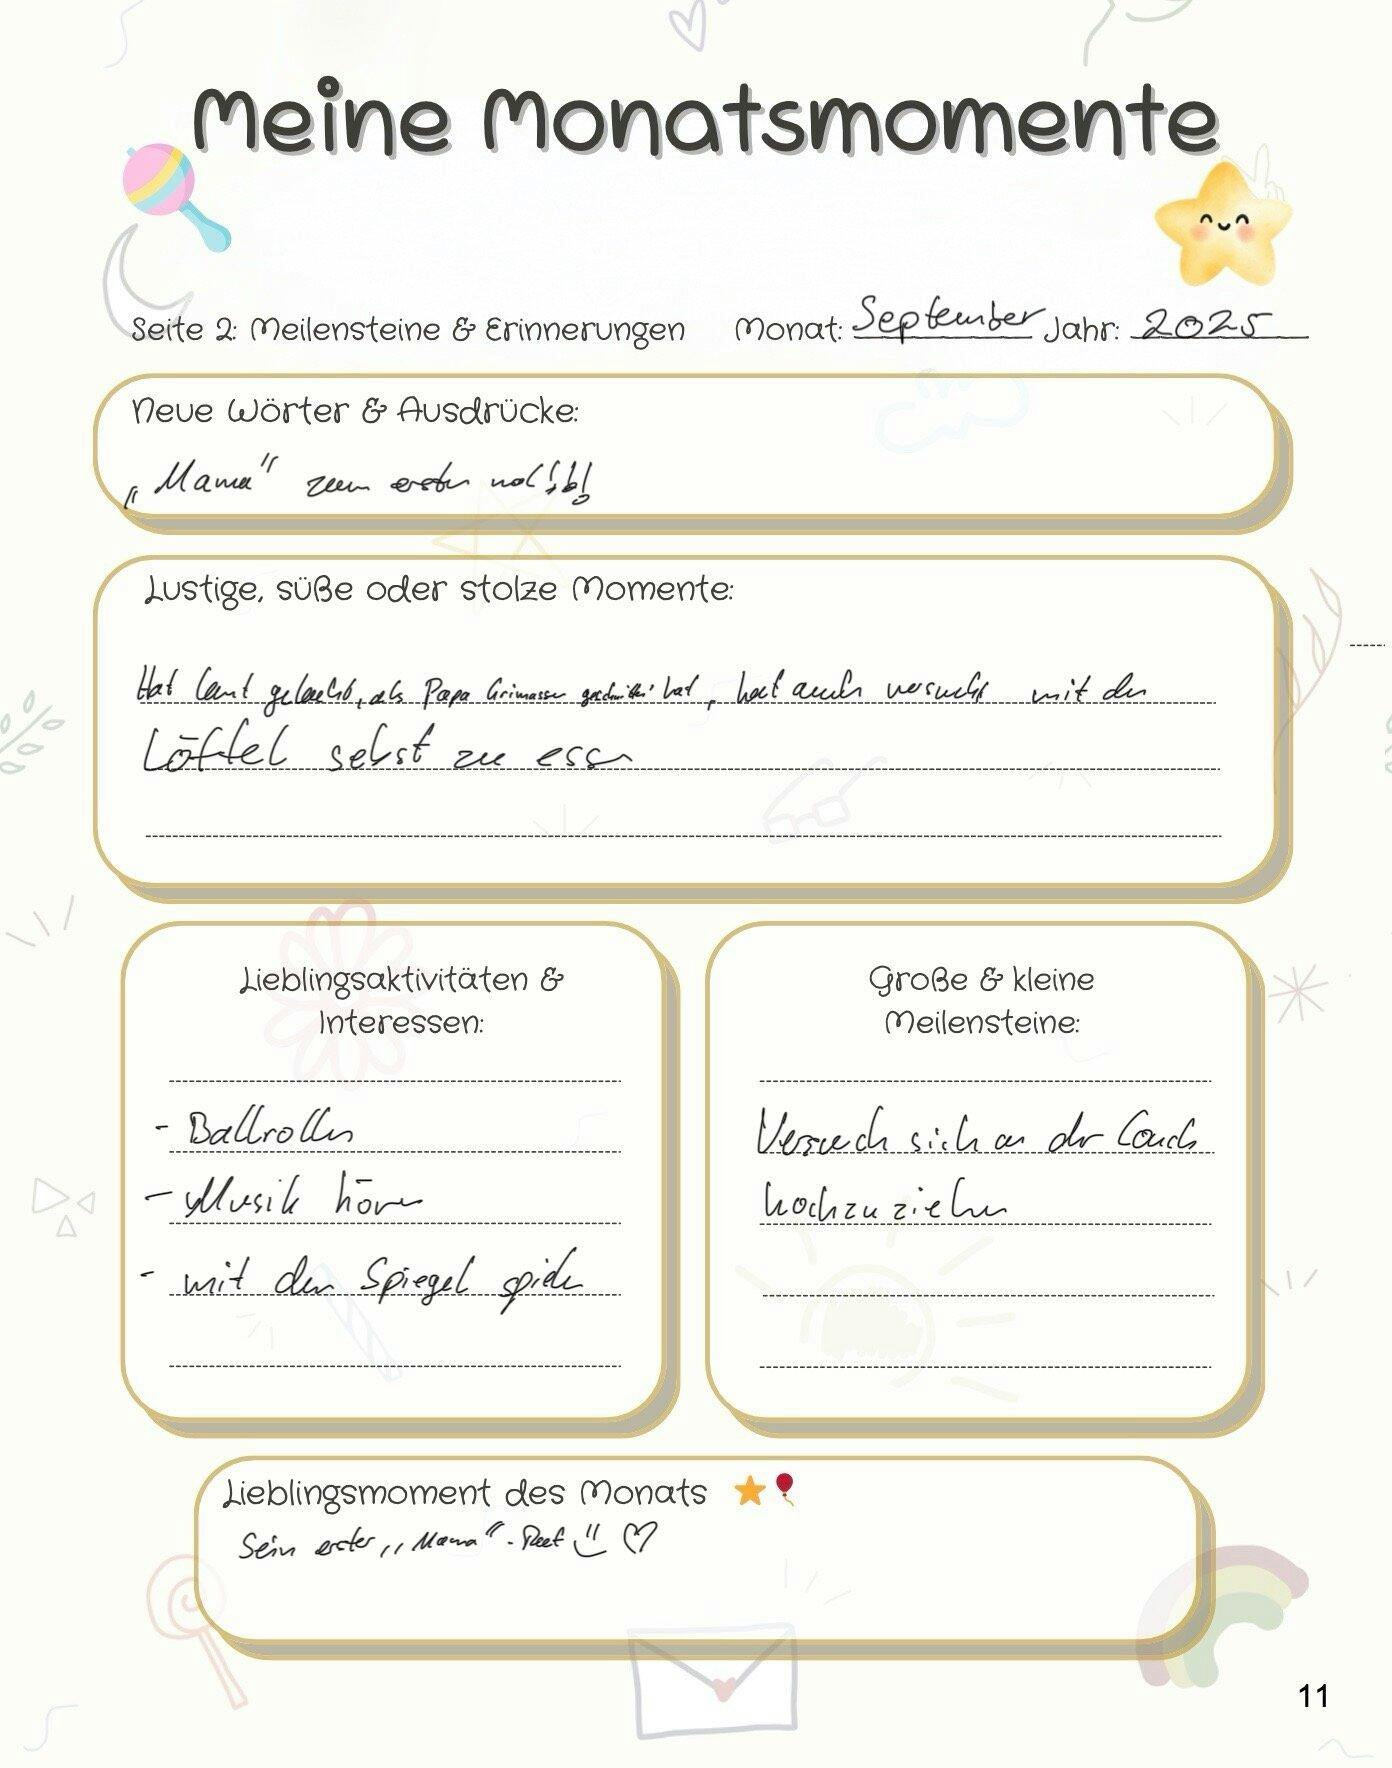 Meine Monatsmomente
Seite 2: Meilensteine & Erinnerungen Monat: September Jahr: 2025
Neue Wörter & Ausdrücke:
„Mama" zum ersten mal!!!
Lustige, süße oder stolze Momente:
Hat laut gelacht, als Papa Grimassen geschnitten hat, hat auch versucht mit den
Löffel selbst zu essen
Lieblingsaktivitäten &
Interessen:
- Ballrollen
- Musik hören
- mit den Spiegel spielen
Große & kleine
Meilensteine:
Versuch sich an der Couch
hochzuziehen
Lieblingsmoment des Monats
Sein erster „Mama"-
11